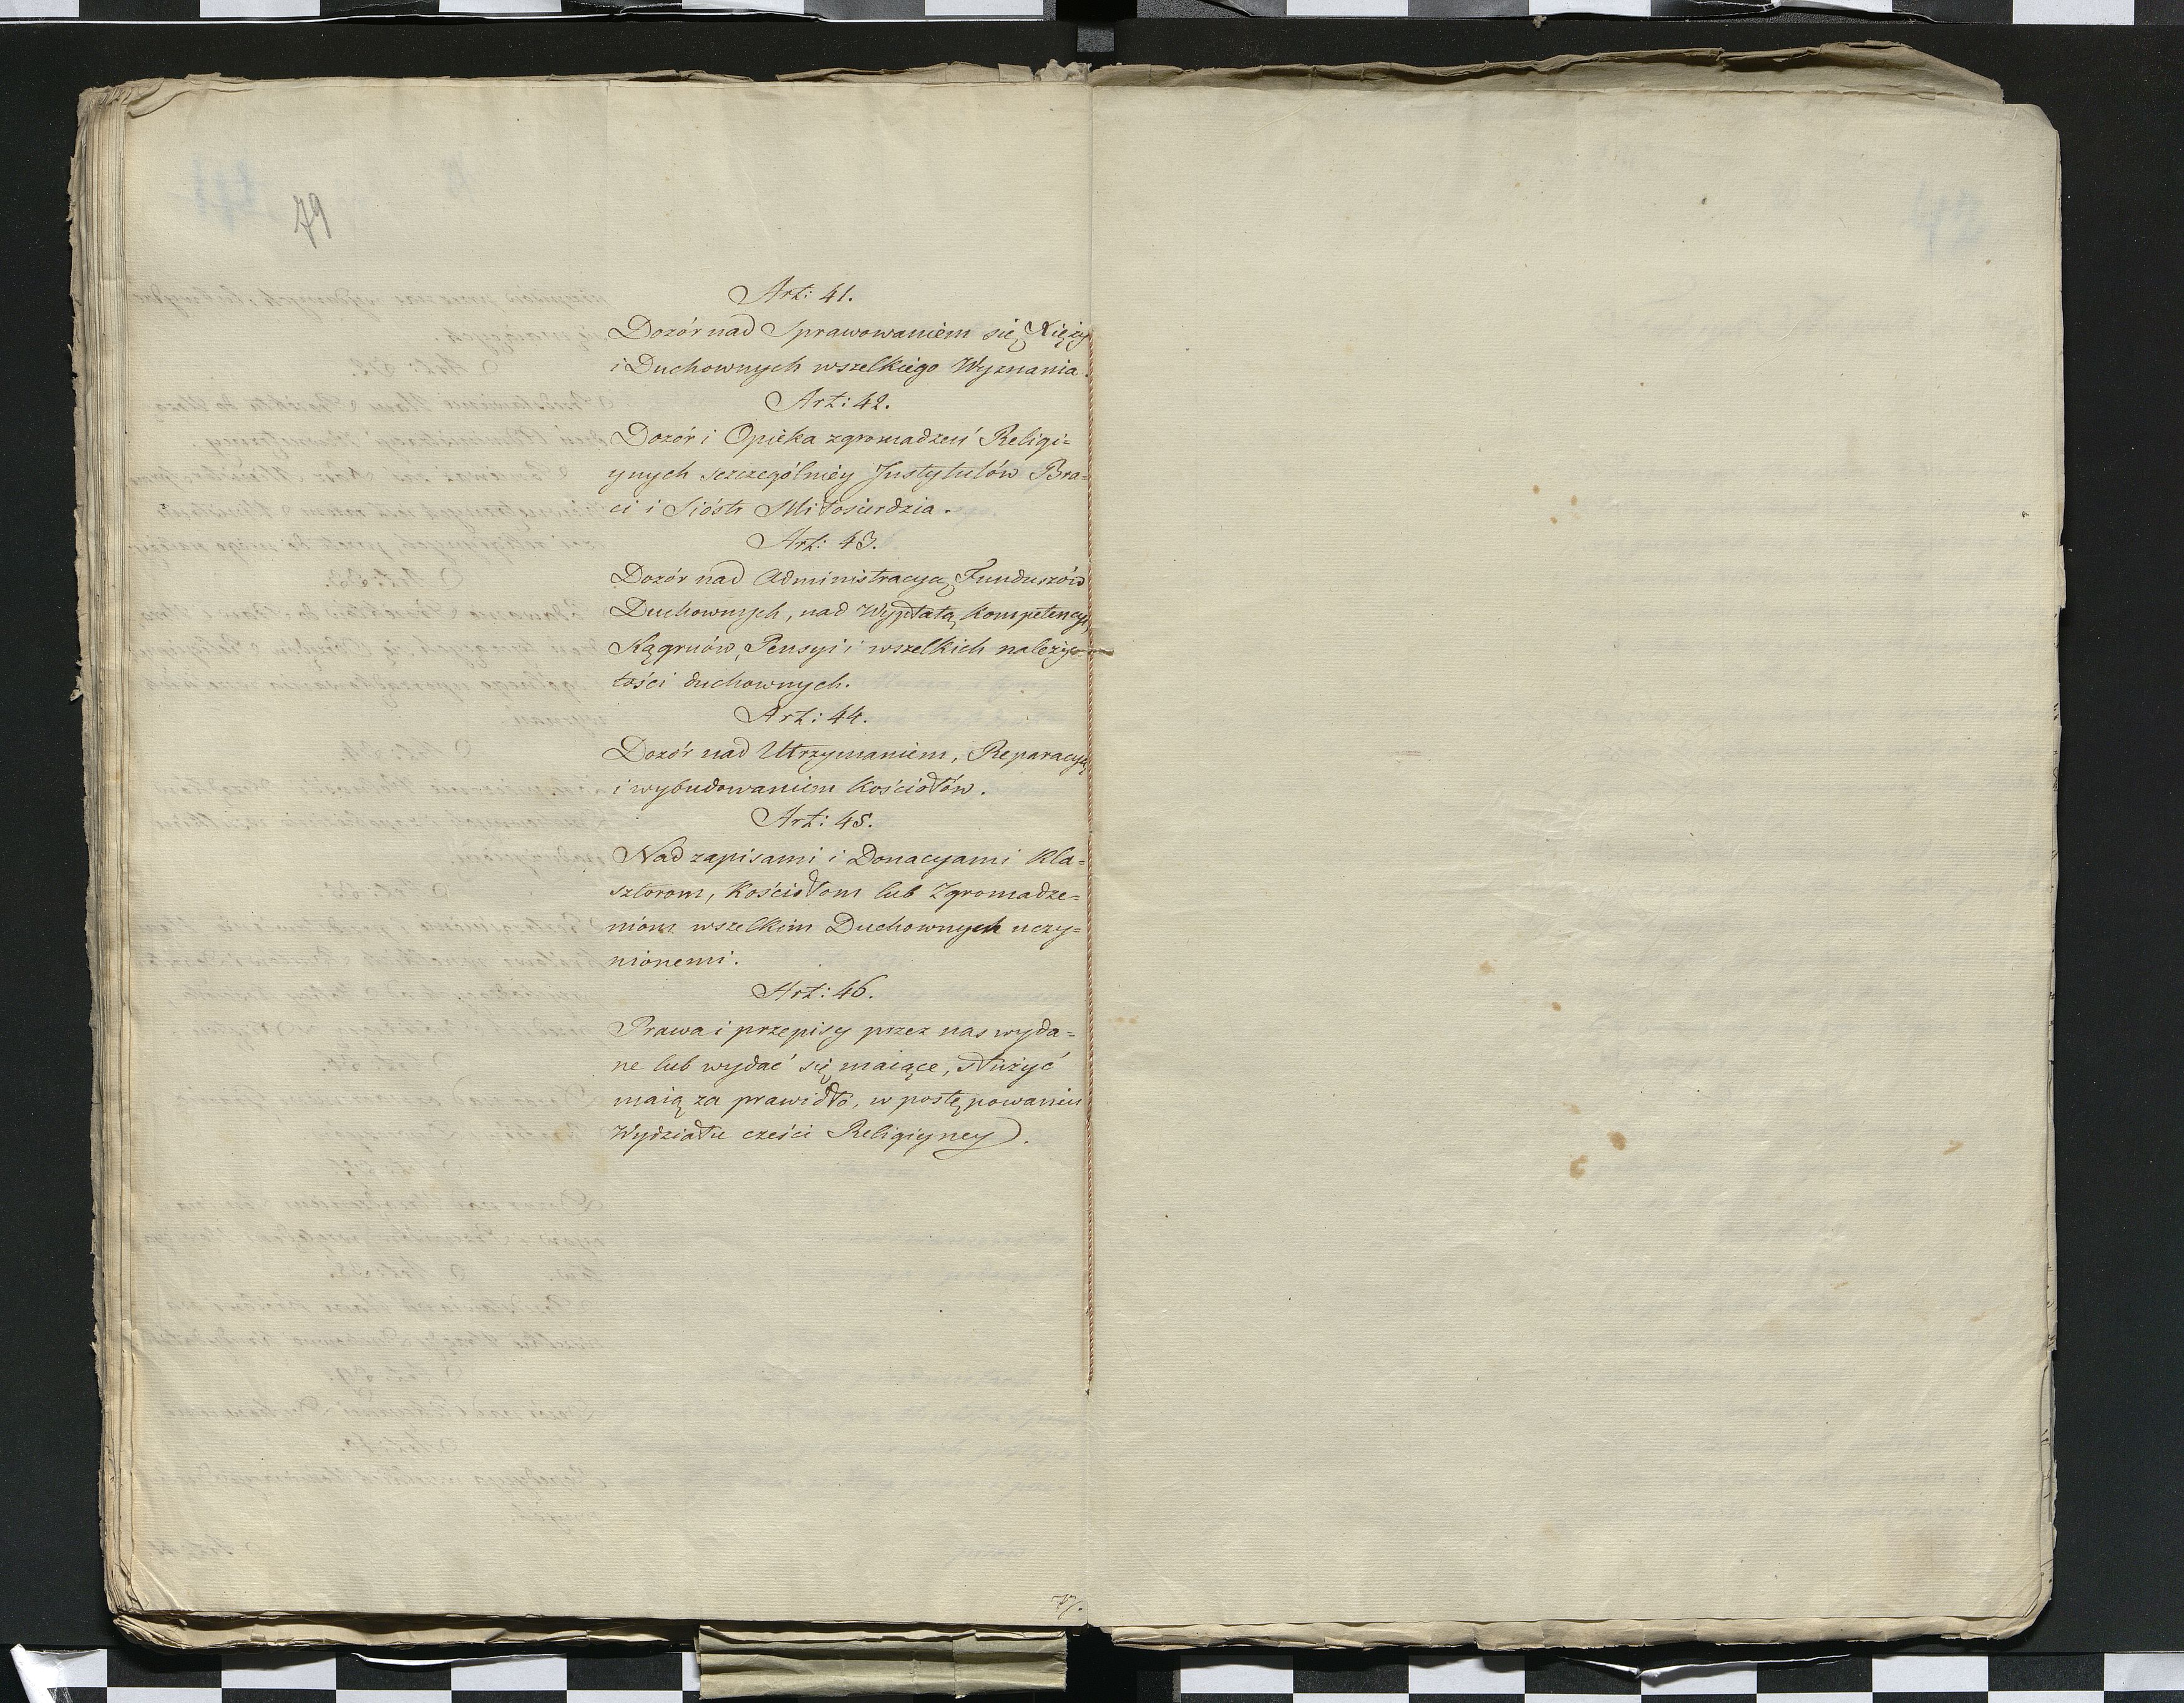 79
Art: 41.
Dozór nad Sprawowaniem się Xięży
i Duchownych wszelkiego Wyznania.
Art: 42.
Dozór i Opieka zgromadzeń Religi=
ynych szczególniéy Instytutów Bra=
ci i Sióstr Miłosierdzia.
Art: 43.
Dozór nad Administracyą Funduszów
Duchownych, nad Wypłatą Kompetencyi,
Kągruów, Pensyi i wszelkich należy=
tości duchownych.
Art: 44.
Dozór nad Utrzymaniem, Reparacyą
i wybudowaniem Kościołów.
Art: 45.
Nad zapisami i Donacyami Kla=
sztorom, Kościołom lub Zgromadze=
niom wszelkim Duchownych uczy=
nionemi.
Art: 46.
Prawa i przepisy przez nas wyda=
ne lub wydać się maiące, służyć
maią za prawidło, w postępowaniu
Wydziału cześci Religiyney.